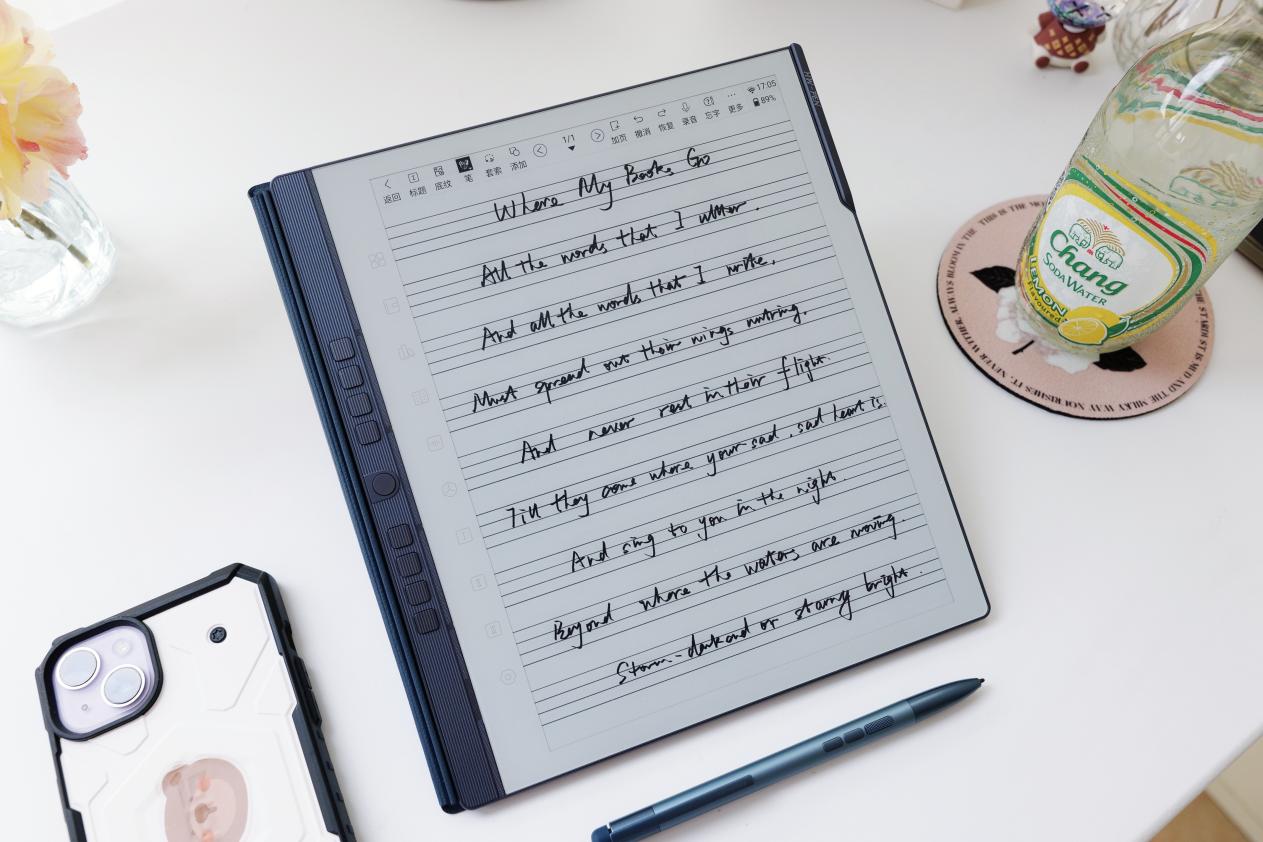 17:05
返回 标题 底纹 笔 套索 添加 1/1 加页 撤消 恢复 录音 忘字 更多 89%
Where My Books Go
All the words that I utter.
And all the words that I write,
Must spread out their wings untiring.
And never rest in their flight.
Till they come where your sad, sad heart is.
And sing to you in the night.
Beyond where the waters are moving.
Storm-darkend or starry bright.
Chang
SODA WATER
LEMON
Flavoured
THIS IS THE
THE STARDUST IS MUD AND THE MILKY WAY NOURISHES IT. NEVER WITHER, ALWAYS BLOOM IN THE